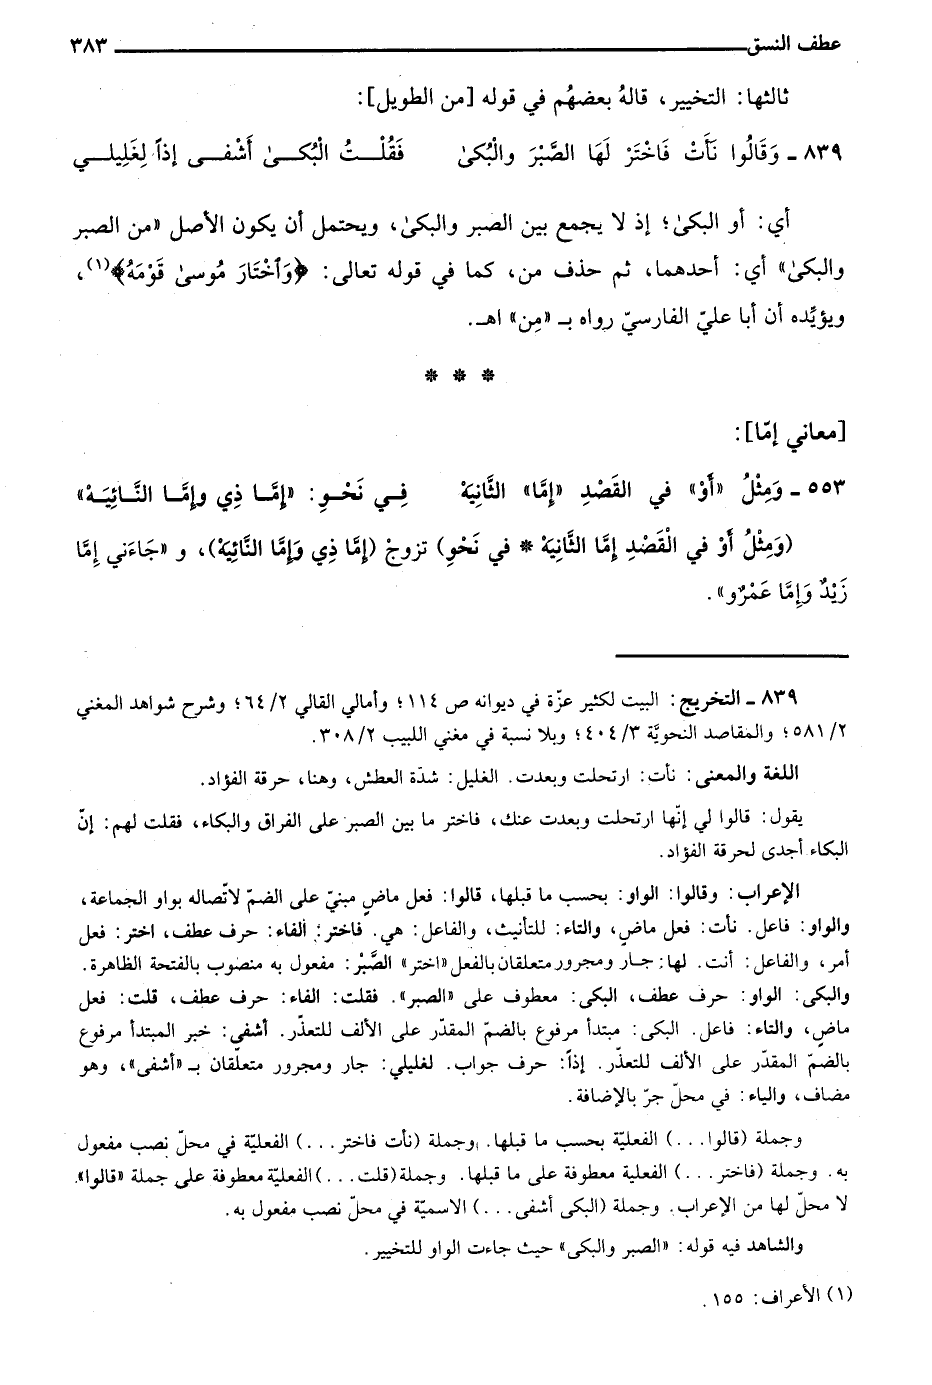 عطف النسق ٣٨٣
ثالثها: التخيير، قالهُ بعضهُم في قوله [من الطويل]:
٨٣٩ ـ وَقَالُوا نَأَتْ فَاخْتَرْ لَهَا الصَّبْرَ والْبُكىٰ فَقُلْــتُ الْبُكــىٰ أَشْفــى إذاً لِغَلِيلــي
أي: أو البكىٰ؛ إذ لا يجمع بين الصبر والبكىٰ، ويحتمل أن يكون الأصل «من الصبر
والبكىٰ» أي: أحدهما، ثم حذف من، كما في قوله تعالى: ﴿وَٱخْتَارَ مُوسىٰ قَوْمَهُ﴾(١)،
ويؤيِّده أن أبا عليّ الفارسيّ رواه بـ «مِن» اهـ.
* * *
[معاني إمّا]:
٥٥٣ ـ وَمِثْلُ «أَوْ» في القَصْدِ «إمَّا» الثَّانِيَهْ فِـي نَحْـوِ: «إمَّـا ذِي وإمَّـا النَّـائِيَـهْ»
(وَمِثْلُ أَوْ في الْقَصْدِ إمَّا الثَّانِيَهْ * في نَحْوِ) تزوجْ (إمَّا ذِي وَإمَّا النَّائِيَهْ)، و «جَاءَني إمَّا
زَيْدٌ وَإمَّا عَمْرٌو».
٨٣٩ ـ التخريج: البيت لكثير عزّة في ديوانه ص ١١٤؛ وأمالي القالي ٢/ ٦٤؛ وشرح شواهد المغني
٢/ ٥٨١؛ والمقاصد النحويَّة ٣/ ٤٠٤؛ وبلا نسبة في مغني اللبيب ٢/ ٣٠٨.
اللغة والمعنى: نأت: ارتحلت وبعدت. الغليل: شدّة العطش، وهنا، حرقة الفؤاد.
يقول: قالوا لي إنّها ارتحلت وبعدت عنك، فاختر ما بين الصبر على الفراق والبكاء، فقلت لهم: إنّ
البكاء أجدى لحرقة الفؤاد.
الإعراب: وقالوا: الواو: بحسب ما قبلها، قالوا: فعل ماضٍ مبنيّ على الضمّ لاتّصاله بواو الجماعة،
والواو: فاعل. نأت: فعل ماضٍ، والتاء: للتأنيث، والفاعل: هي. فاختر: الفاء: حرف عطف، اختر: فعل
أمر، والفاعل: أنت. لها: جار ومجرور متعلقان بالفعل «اختر» الصَّبْر: مفعول به منصوب بالفتحة الظاهرة.
والبكى: الواو: حرف عطف، البكى: معطوف على «الصبر». فقلت: الفاء: حرف عطف، قلت: فعل
ماضٍ، والتاء: فاعل. البكى: مبتدأ مرفوع بالضمّ المقدّر على الألف للتعذّر. أشفي: خبر المبتدأ مرفوع
بالضمّ المقدّر على الألف للتعذّر. إذاً: حرف جواب. لغليلي: جار ومجرور متعلّقان بـ «أشفى»، وهو
مضاف، والياء: في محلّ جرّ بالإضافة.
وجملة (قالوا...) الفعليّة بحسب ما قبلها. وجملة (نأت فاختر...) الفعليّة في محلّ نصب مفعول
به. وجملة (فاختر...) الفعلية معطوفة على ما قبلها. وجملة (قلت...) الفعليّة معطوفة على جملة «قالوا»
لا محلّ لها من الإعراب. وجملة (البكى أشفى...) الاسميّة في محلّ نصب مفعول به.
والشاهد فيه قوله: «الصبر والبكى» حيث جاءت الواو للتخيير.
(١) الأعراف: ١٥٥.